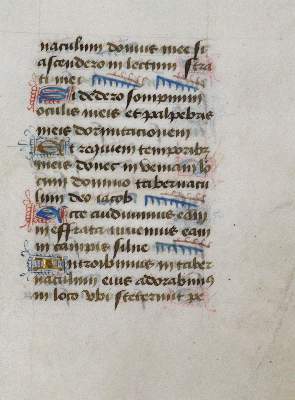 naculum domus mee si
ascendero in lectum stra
ti mei
Si dedero sompnum
oculis meis et palpebris
meis dormitacionem
Et requiem temporibz
meis donec inveniam lo
cum domino tabernacu
lum deo iacob
Ecce audivimus eam
in effrata invenimus eam
in campis silue
Introibimus in taber
naculum eius adorabimus
in loco vbi steterunt pe